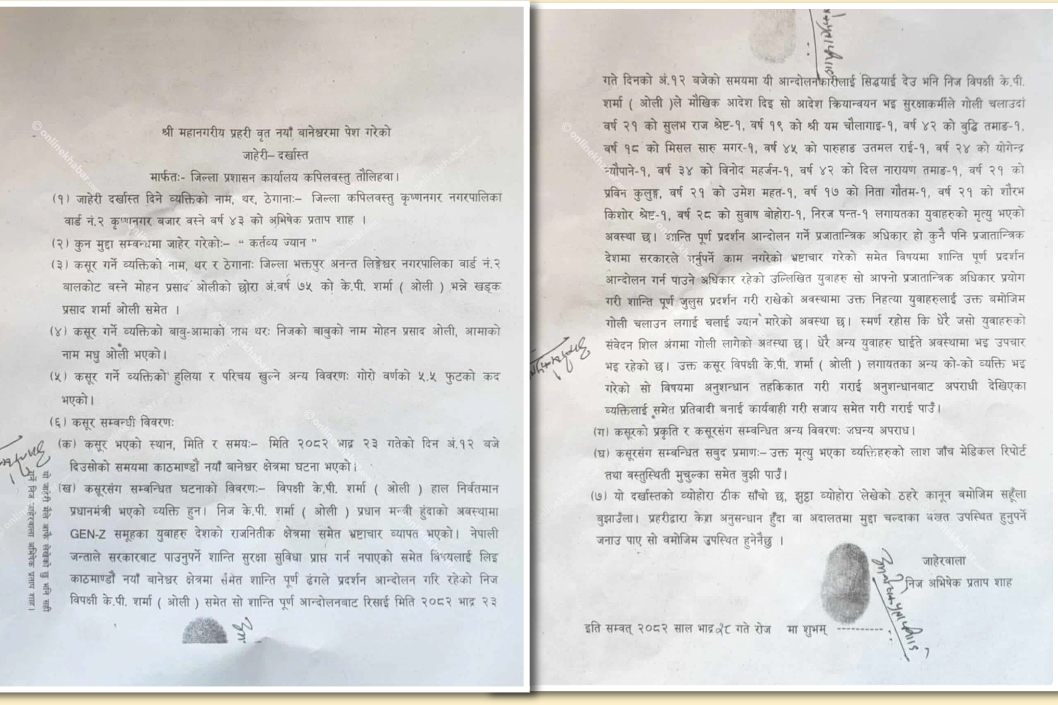 श्री महानगरीय प्रहरी वृत नयाँ बानेश्वरमा पेश गरेको
जाहेरी– दर्खास्त
मार्फतः- जिल्ला प्रशासन कार्यालय कपिलवस्तु तौलिहवा।
(१) जाहेरी दर्खास्त दिने व्यक्तिको नाम, थर, ठेगानाः– जिल्ला कपिलवस्तु कृष्णनगर नगरपालिका
वार्ड नं.२ कृष्णनगर बजार बस्ने वर्ष ४३ को अभिषेक प्रताप शाह ।
(२) कुन मुद्दा सम्वन्धमा जाहेर गरेकोः– “ कर्तव्य ज्यान ”
(३) कसूर गर्ने व्यक्तिको नाम, थर र ठेगानाः जिल्ला भक्तपुर अनन्त लिङ्गेश्वर नगरपालिका वार्ड नं.२
वालकोट वस्ने मोहन प्रसाद ओलीको छोरा अं.वर्ष ७५ को के.पी. शर्मा ( ओली ) भन्ने खड्क
प्रसाद शर्मा ओली समेत ।
(४) कसूर गर्ने व्यक्तिको बाबु-आमाको नाम थरः निजको बाबुको नाम मोहन प्रसाद ओली, आमाको
नाम मधु ओली भएको।
(५) कसूर गर्ने व्यक्तिको हुलिया र परिचय खुल्ने अन्य विवरणः गोरो वर्णको ५.५ फुटको कद
भएको।
(६) कसूर सम्बन्धी विवरणः
(क) कसूर भएको स्थान, मिति र समयः– मिति २०८२ भाद्र २३ गतेको दिन अं.१२ बजे
दिउसोको समयमा काठमाण्डौ नयाँ बानेश्वर क्षेत्रमा घटना भएको।
(ख) कसूरसंग सम्बन्धित घटनाको विवरणः– विपक्षी के.पी. शर्मा ( ओली ) हाल निर्वतमान
प्रधानमंत्री भएको व्यक्ति हुन। निज के.पी. शर्मा ( ओली ) प्रधान मन्त्री हुंदाको अवस्थामा
GEN-Z समूहका युवाहरु देशको राजनितीक क्षेत्रमा समेत भ्रष्टाचार व्यापत भएको। नेपाली
जनताले सरकारबाट पाउनुपर्ने शान्ति सुरक्षा सुविधा प्राप्त गर्न नपाएको समेत विषयलाई लिइ
काठमाण्डौ नयाँ बानेश्वर क्षेत्रमा समेत शान्ति पूर्ण ढंगले प्रदर्शन आन्दोलन गरि रहेको निज
विपक्षी के.पी. शर्मा ( ओली ) समेत सो शान्ति पूर्ण आन्दोलनबाट रिसाई मिति २०८२ भाद्र २३
गते दिनको अं.१२ बजेको समयमा यी आन्दोलनकारीलाई सिद्धयाई देउ भनि निज विपक्षी के.पी.
शर्मा ( ओली )ले मौखिक आदेश दिइ सो आदेश क्रियान्वयन भइ सुरक्षाकर्मीले गोली चलाउदां
वर्ष २१ को सुलभ राज श्रेष्ट-१, वर्ष १९ को श्री यम चौलागाइ-१, वर्ष ४२ को बुद्धि तमाङ-१,
वर्ष १८ को मिसल सारु मगर-१, वर्ष ४५ को पारुहाड उतमल राई-१, वर्ष २४ को योगेन्द्र
न्यौपाने-१, वर्ष ३४ को विनोद महर्जन-१, वर्ष ४२ को दिल नारायण तमाङ-१, वर्ष २१ को
प्रविन कुलुङ्ग, वर्ष २१ को उमेश महत-१, वर्ष १७ को निता गौतम-१, वर्ष २१ को शौरभ
किशोर श्रेष्ट-१, वर्ष २८ को सुवाष बोहोरा-१, निरज पन्त-१ लगायतका युवाहरुको मृत्यु भएको
अवस्था छ। शान्ति पूर्ण प्रदर्शन आन्दोलन गर्ने प्रजातान्त्रिक अधिकार हो कुनै पनि प्रजातान्त्रिक
देशमा सरकारले गर्नुपर्ने काम नगरेको भ्रष्टाचार गरेको समेत विषयमा शान्ति पूर्ण प्रदर्शन
आन्दोलन गर्न पाउने अधिकार रहेको उल्लिखित युवाहरु सो आफ्नो प्रजातान्त्रिक अधिकार प्रयोग
गरी शान्ति पूर्ण जुलुस प्रदर्शन गरी राखेको अवस्थामा उक्त निहत्या युवाहरुलाई उक्त बमोजिम
गोली चलाउन लगाई चलाई ज्यान मारेको अवस्था छ। स्मर्ण रहोस कि धेरै जसो युवाहरुको
संवेदन शिल अंगमा गोली लागेको अवस्था छ। धेरै अन्य युवाहरु घाईते अवस्थामा भइ उपचार
भइ रहेको छ। उक्त कसूर विपक्षी के.पी. शर्मा ( ओली ) लगायतका अन्य को-को व्यक्ति भइ
गरेको सो विषयमा अनुशन्धान तहकिकात गरी गराई अनुशन्धानबाट अपराधी देखिएका
व्यक्तिलाई समेत प्रतिवादी बनाई कार्यवाही गरी सजाय समेत गरी गराई पाउँ।
(ग) कसूरको प्रकृति र कसूरसंग सम्वन्धित अन्य विवरणः जघन्य अपराध।
(घ) कसूरसंग सम्वन्धित सबुद प्रमाणः– उक्त मृत्यु भएका व्यक्तिहरुको लाश जाँच मेडिकल रिपोर्ट
तथा वस्तुस्थिती मुचुल्का समेत वुझी पाउँ।
(७) यो दर्खास्तको व्योहोरा ठीक साँचो छ, झुठ्ठा व्योहोरा लेखेको ठहरे कानून बमोजिम सहूँला
वुझाउँला। प्रहरीद्वारा केश अनुसन्धान हुँदा वा अदालतमा मुद्दा चल्दाका बखत उपस्थित हुनुपर्ने
जनाउ पाए सो वमोजिम उपस्थित हुनेनैछु ।
जाहेरवाला
निज अभिषेक प्रताप शाह
इति सम्वत् २०८२ साल भाद्र २८ गते रोज मा शुभम् ----------
यो जाहेरी मैले बाकै लेखेको छु भनि सही
गर्ने निज जाहेरवाला अभिषेक प्रताप शाह।
onlinekhabar